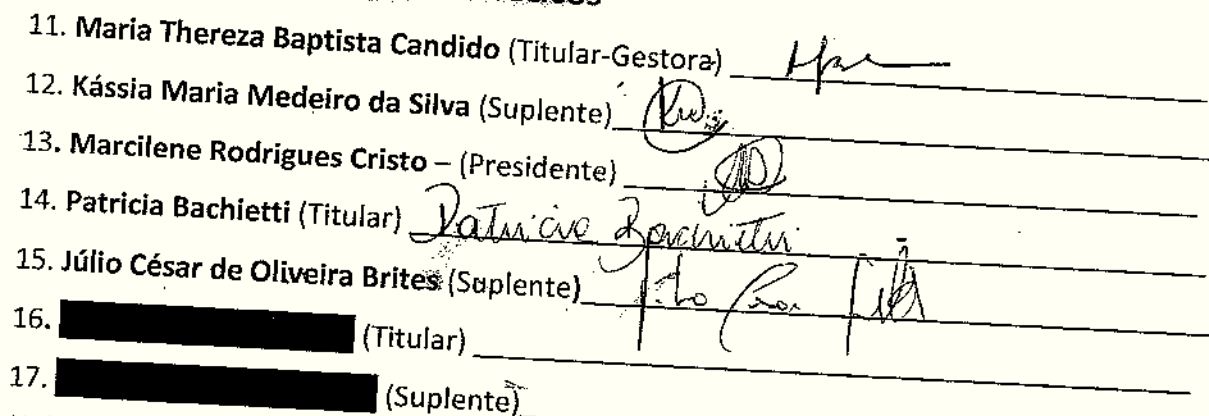 11. Maria Thereza Baptista Candido (Titular-Gestora)
12. Kássia Maria Medeiro da Silva (Suplente)
13. Marcilene Rodrigues Cristo – (Presidente)
14. Patricia Bachietti (Titular) Patricia Bachietti
15. Júlio César de Oliveira Brites (Suplente)
16. (Titular)
17. (Suplente)